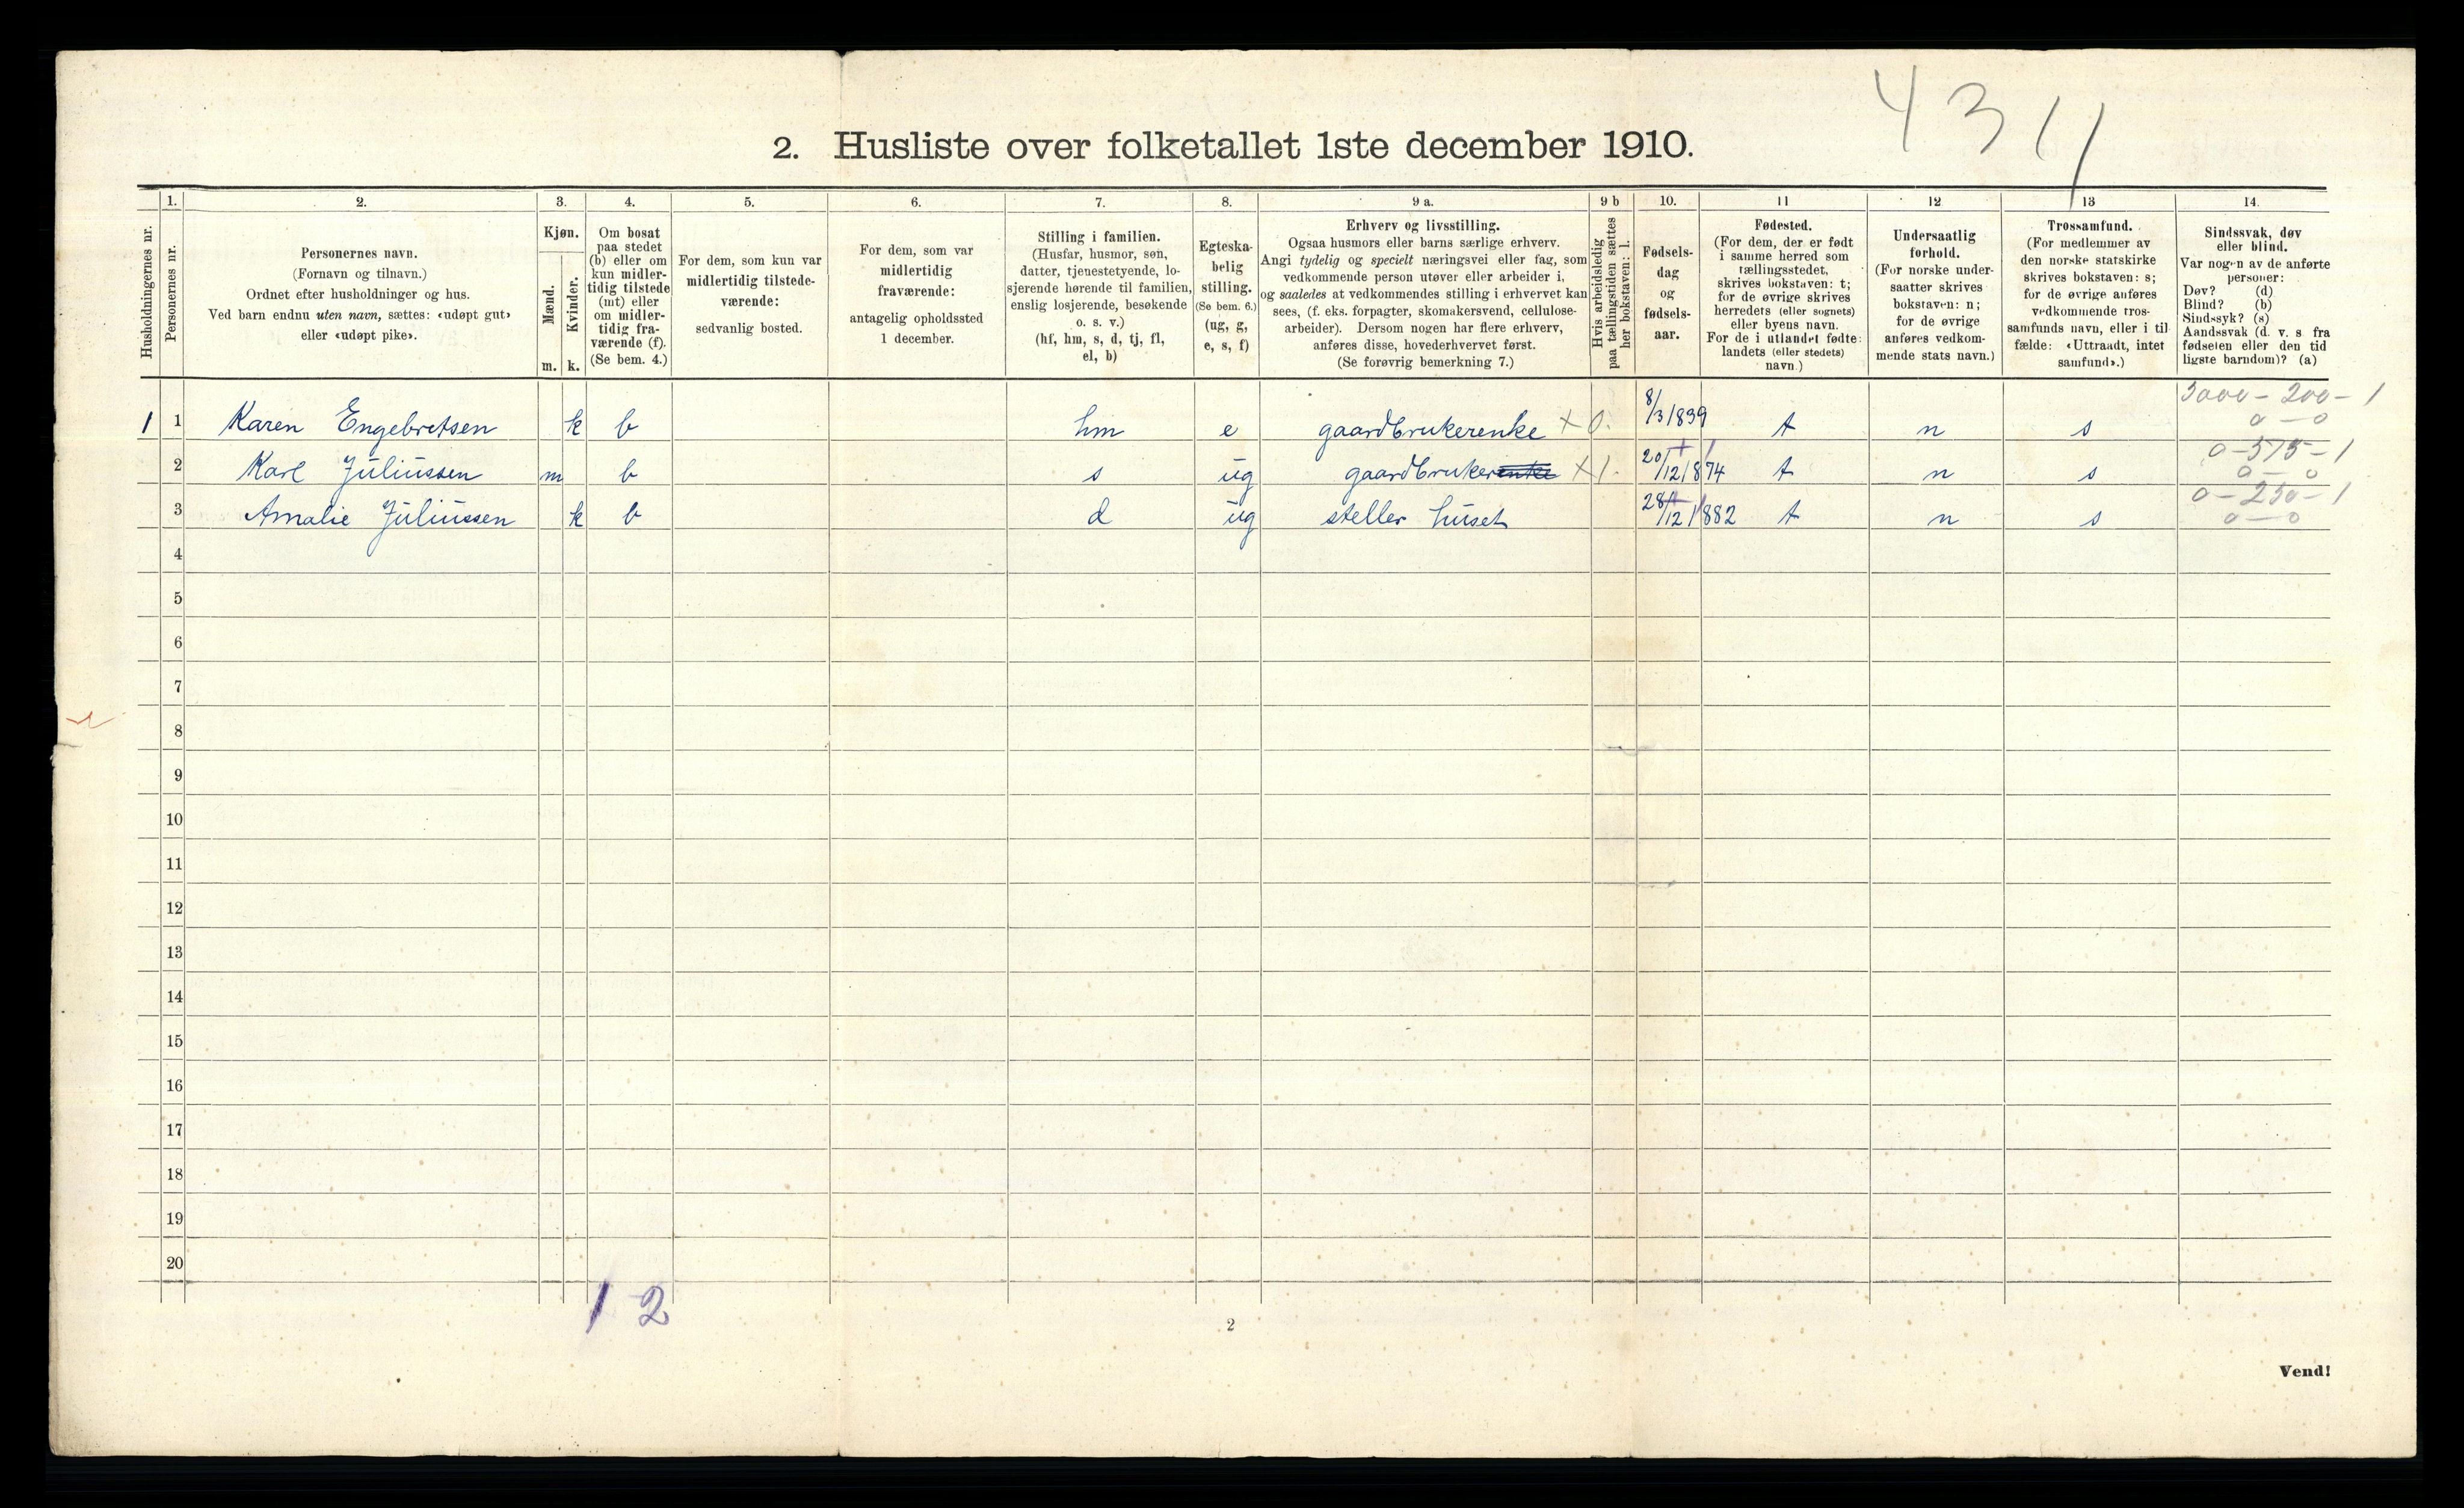 4 3 11
2. Husliste over folketallet 1ste december 1910.
Husholdningernes nr.
1.
Personernes nr.
2.
Personernes navn.
(Fornavn og tilnavn.)
Ordnet efter husholdninger og hus.
Ved barn endnu uten navn, sættes: «udøpt gut»
eller «udøpt pike».
3.
Kjøn.
Mænd.
Kvinder.
m. k.
4.
Om bosat
paa stedet
(b) eller om
kun midler-
tidig tilstede
(mt) eller
om midler-
tidig fra-
værende (f).
(Se bem. 4.)
5.
For dem, som kun var
midlertidig tilstede-
værende:
sedvanlig bosted.
6.
For dem, som var
midlertidig
fraværende:
antagelig opholdssted
1 december.
7.
Stilling i familien.
(Husfar, husmor, søn,
datter, tjenestetyende, lo-
sjerende hørende til familien,
enslig losjerende, besøkende
o. s. v.)
(hf, hm, s, d, tj, fl,
el, b)
8.
Egteska-
belig
stilling.
(Se bem. 6.)
(ug, g,
e, s, f)
9 a.
Erhverv og livsstilling.
Ogsaa husmors eller barns særlige erhverv.
Angi tydelig og specielt næringsvei eller fag, som
vedkommende person utøver eller arbeider i,
og saaledes at vedkommendes stilling i erhvervet kan
sees, (f. eks. forpagter, skomakersvend, cellulose-
arbeider). Dersom nogen har flere erhverv,
anføres disse, hovederhvervet først.
(Se forøvrig bemerkning 7.)
9 b
Hvis arbeidsledig
paa tællingstiden sættes
her bokstaven: l.
10.
Fødsels-
dag
og
fødsels-
aar.
11
Fødested.
(For dem, der er født
i samme herred som
tællingsstedet,
skrives bokstaven: t;
for de øvrige skrives
herredets (eller sognets)
eller byens navn.
For de i utlandet fødte:
landets (eller stedets)
navn.)
12
Undersaatlig
forhold.
(For norske under-
saatter skrives
bokstaven: n;
for de øvrige
anføres vedkom-
mende stats navn.)
13
Trossamfund.
(For medlemmer av
den norske statskirke
skrives bokstaven: s;
for de øvrige anføres
vedkommende tros-
samfunds navn, eller i til
fælde: «Uttraadt, intet
samfund».)
14.
Sindssvak, døv
eller blind.
Var nogen av de anførte
personer:
Døv? (d)
Blind? (b)
Sindssyk? (s)
Aandssvak (d. v. s fra
fødselen eller den tid
ligste barndom)? (a)
3000 - 200 - 1
1 1 Karen Engebretsen k b hm e gaardbrukerenke × 0. 8/3 1839 t n s 0 - 0
0 - 575 - 1
2 Karl Juliussen m b s ug gaardbrukerenke × 1. 20/12 1874 t n s 0 - 0
0 - 250 - 1
3 Amalie Juliussen k b d ug steller huset 28/12 1882 t n s 0 - 0
4
5
6
7
8
9
10
11
12
13
14
15
16
17
18
19
20
1 2
2
Vend!